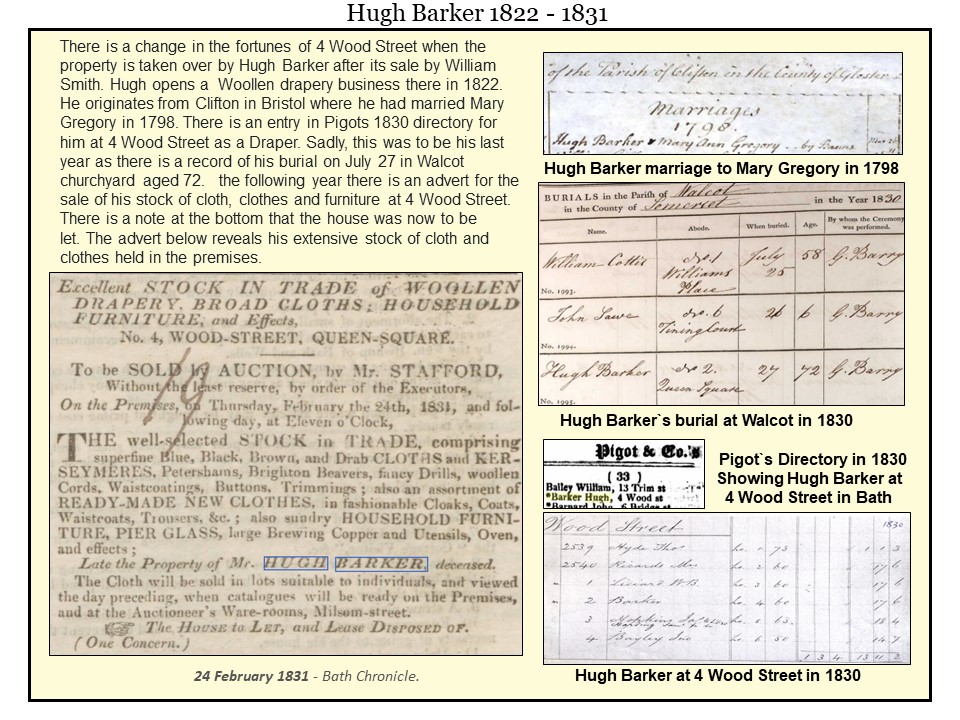 Hugh Barker 1822 - 1831
There is a change in the fortunes of 4 Wood Street when the
property is taken over by Hugh Barker after its sale by William
Smith. Hugh opens a  Woollen drapery business there in 1822.
He originates from Clifton in Bristol where he had married Mary
Gregory in 1798. There is an entry in Pigots 1830 directory for
him at 4 Wood Street as a Draper. Sadly, this was to be his last
year as there is a record of his burial on July 27 in Walcot
churchyard aged 72.   the following year there is an advert for the
sale of his stock of cloth, clothes and furniture  at 4 Wood Street.
There is a note at the bottom that the house was now to be
let. The advert below reveals his extensive stock of cloth and
clothes held in the premises.
Excellent STOCK IN TRADE of WOOLLEN
DRAPERY, BROAD CLOTHS; HOUSEHOLD
FURNITURE, and Effects,
No. 4, WOOD-STREET, QUEEN-SQUARE.
To be SOLD by AUCTION, by Mr. STAFFORD,
Without the least reserve, by order of the Executors,
On the Premises, on Thursday, February the 24th, 1831, and fol-
lowing day, at Eleven o'Clock,
THE well-selected STOCK in TRADE, comprising
superfine Blue, Black, Brown, and Drab CLOTHS and KER-
SEYMERES, Petershams, Brighton Beavers, fancy Drills, woollen
Cords, Waistcoatings, Buttons, Trimmings; also an assortment of
READY-MADE NEW CLOTHES, in fashionable Cloaks, Coats,
Waistcoats, Trousers, &c.; also sundry HOUSEHOLD FURNI-
TURE, PIER GLASS, large Brewing Copper and Utensils, Oven,
and effects;
Late the Property of Mr. HUGH BARKER, deceased.
The Cloth will be sold in lots suitable to individuals, and viewed
the day preceding, when catalogues will be ready on the Premises,
and at the Auctioneer's Ware-rooms, Milsom-street.
☞ The HOUSE to LET, and LEASE DISPOSED OF.
(One Concern.)
24 February 1831 - Bath Chronicle.
of the Parish of Clifton in the County of Gloster
Marriages
1798.
Hugh Barker & Mary Ann Gregory .. by Banns
Hugh Barker marriage to Mary Gregory in 1798
BURIALS in the Parish of Walcot
in the County of Somerset in the Year 1830
Name. Abode. When buried. Age. By whom the Ceremony was performed.
William Cottis No. 1 Williams Place July 25 58 G. Barry
No. 1993.
John Lawe No. 6 26 6 G. Barry
No. 1994.
Hugh Barker No 2. Queen Square 27 72 G. Barry
No. 1995.
Hugh Barker`s burial at Walcot in 1830
Pigot & Co.'s
( 33 )
Bailey William, 13 Trim st
*Barker Hugh, 4 Wood st
*Barnard John, 6 Bridge st
Pigot`s Directory in 1830
Showing Hugh Barker at
4 Wood Street in Bath
Wood Street 1830
2539 Hyde Thos ho 1 75 1 1 3
2540 Ricards Mrs ho 2 60 17 6
1 ho 3 60 17 6
2 Barker ho 4 60 17 6
3 ho 5 65 18 4
4 Bayley Jno ho 6 50 14 7
1 3 4 13 11 2
Hugh Barker at 4 Wood Street in 1830